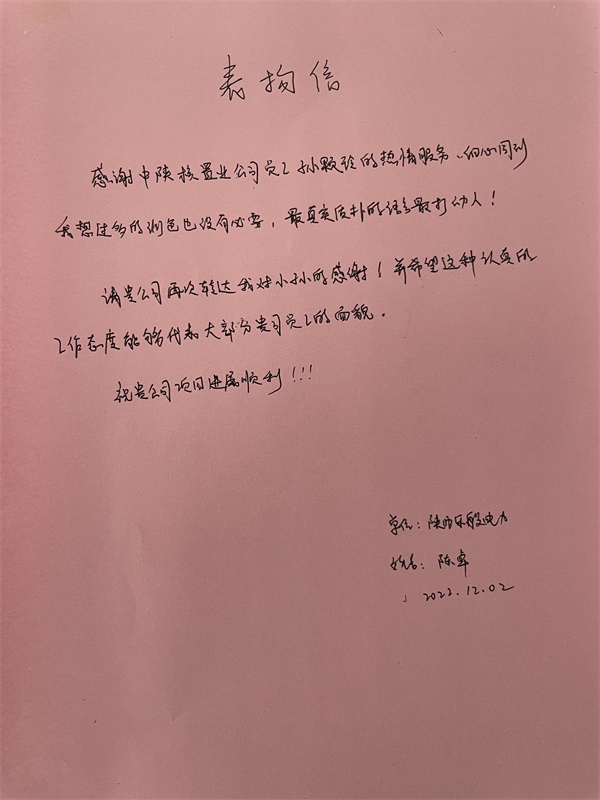 表扬信
感谢中陕核置业公司员工孙颗珍的热情服务、细心周到
我想过多的润色也没有必要，最真实质朴的语言最打动人！
请贵公司再次转达我对小孙的感谢！并希望这种认真的
工作态度能够代表大部分贵司员工的面貌。
祝贵公司项目进展顺利!!!
单位：陕西乐 电力
姓名：陈卓
2022.12.02